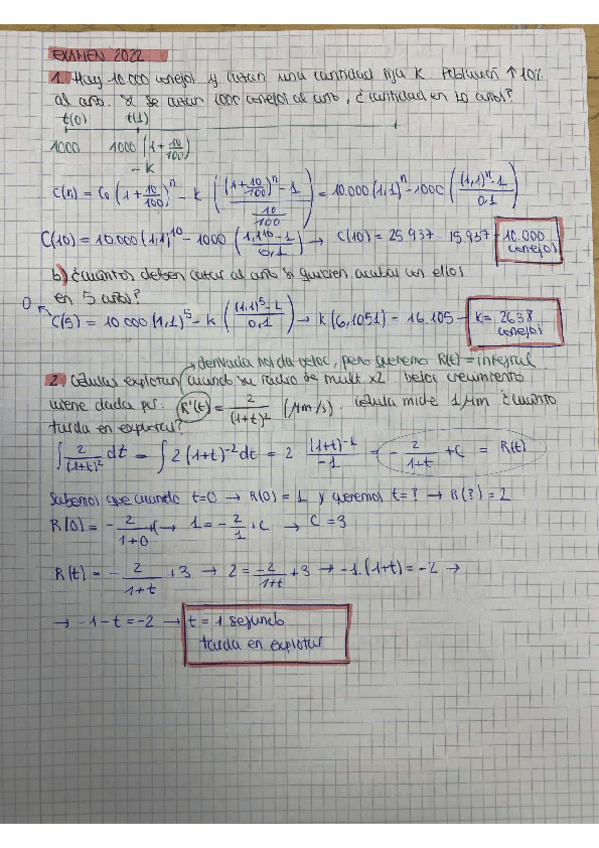 EXAMEN 2022
1. Hay 10 000 conejos y cazan una cantidad fija K Población ↑ 10%
al año. Si se cazan 1000 conejos al año, ¿cantidad en 10 años?
t(0) t(1)
1000 1000 (1+10/100)
- K
C(n) = C0 (1+10/100)^n - K (((1+10/100)^n - 1)/(10/100)) = 10.000 (1,1)^n - 1000 (((1,1)^n - 1)/0,1)
C(10) = 10.000 (1,1)^10 - 1000 ((1,1^10 - 1)/0,1) → C(10) = 25 937 - 15.937 = 10.000 conejos
b) ¿cuántos deben cazar al año si quieren acabar con ellos
en 5 años?
0 ↖ C(5) = 10.000 (1,1)^5 - K (((1,1)^5 - 1)/0,1) → K (6,1051) = 16.105 → K = 2638 conejos
→ derivada nos da veloc, pero queremos R(t) = integral
2. Células explotan cuando su radio se mult. x2 veloc crecimiento
viene dada por: R'(t) = 2/(1+t)^2 (μm/s). célula mide 1 μm ¿cuánto
tarda en explotar?
∫ 2/(1+t)^2 dt = ∫ 2 (1+t)^-2 dt = 2 (1+t)^-1/-1 = - 2/(1+t) + C = R(t)
Sabemos que cuando t=0 → R(0) = 1 y queremos t=? → R(?) = 2
R(0) = - 2/(1+0) + C → 1 = - 2/1 + C → C = 3
R(t) = - 2/(1+t) + 3 → 2 = -2/(1+t) + 3 → -1.(1+t) = -2 →
→ -1 - t = -2 → t = 1 segundo
tarda en explotar